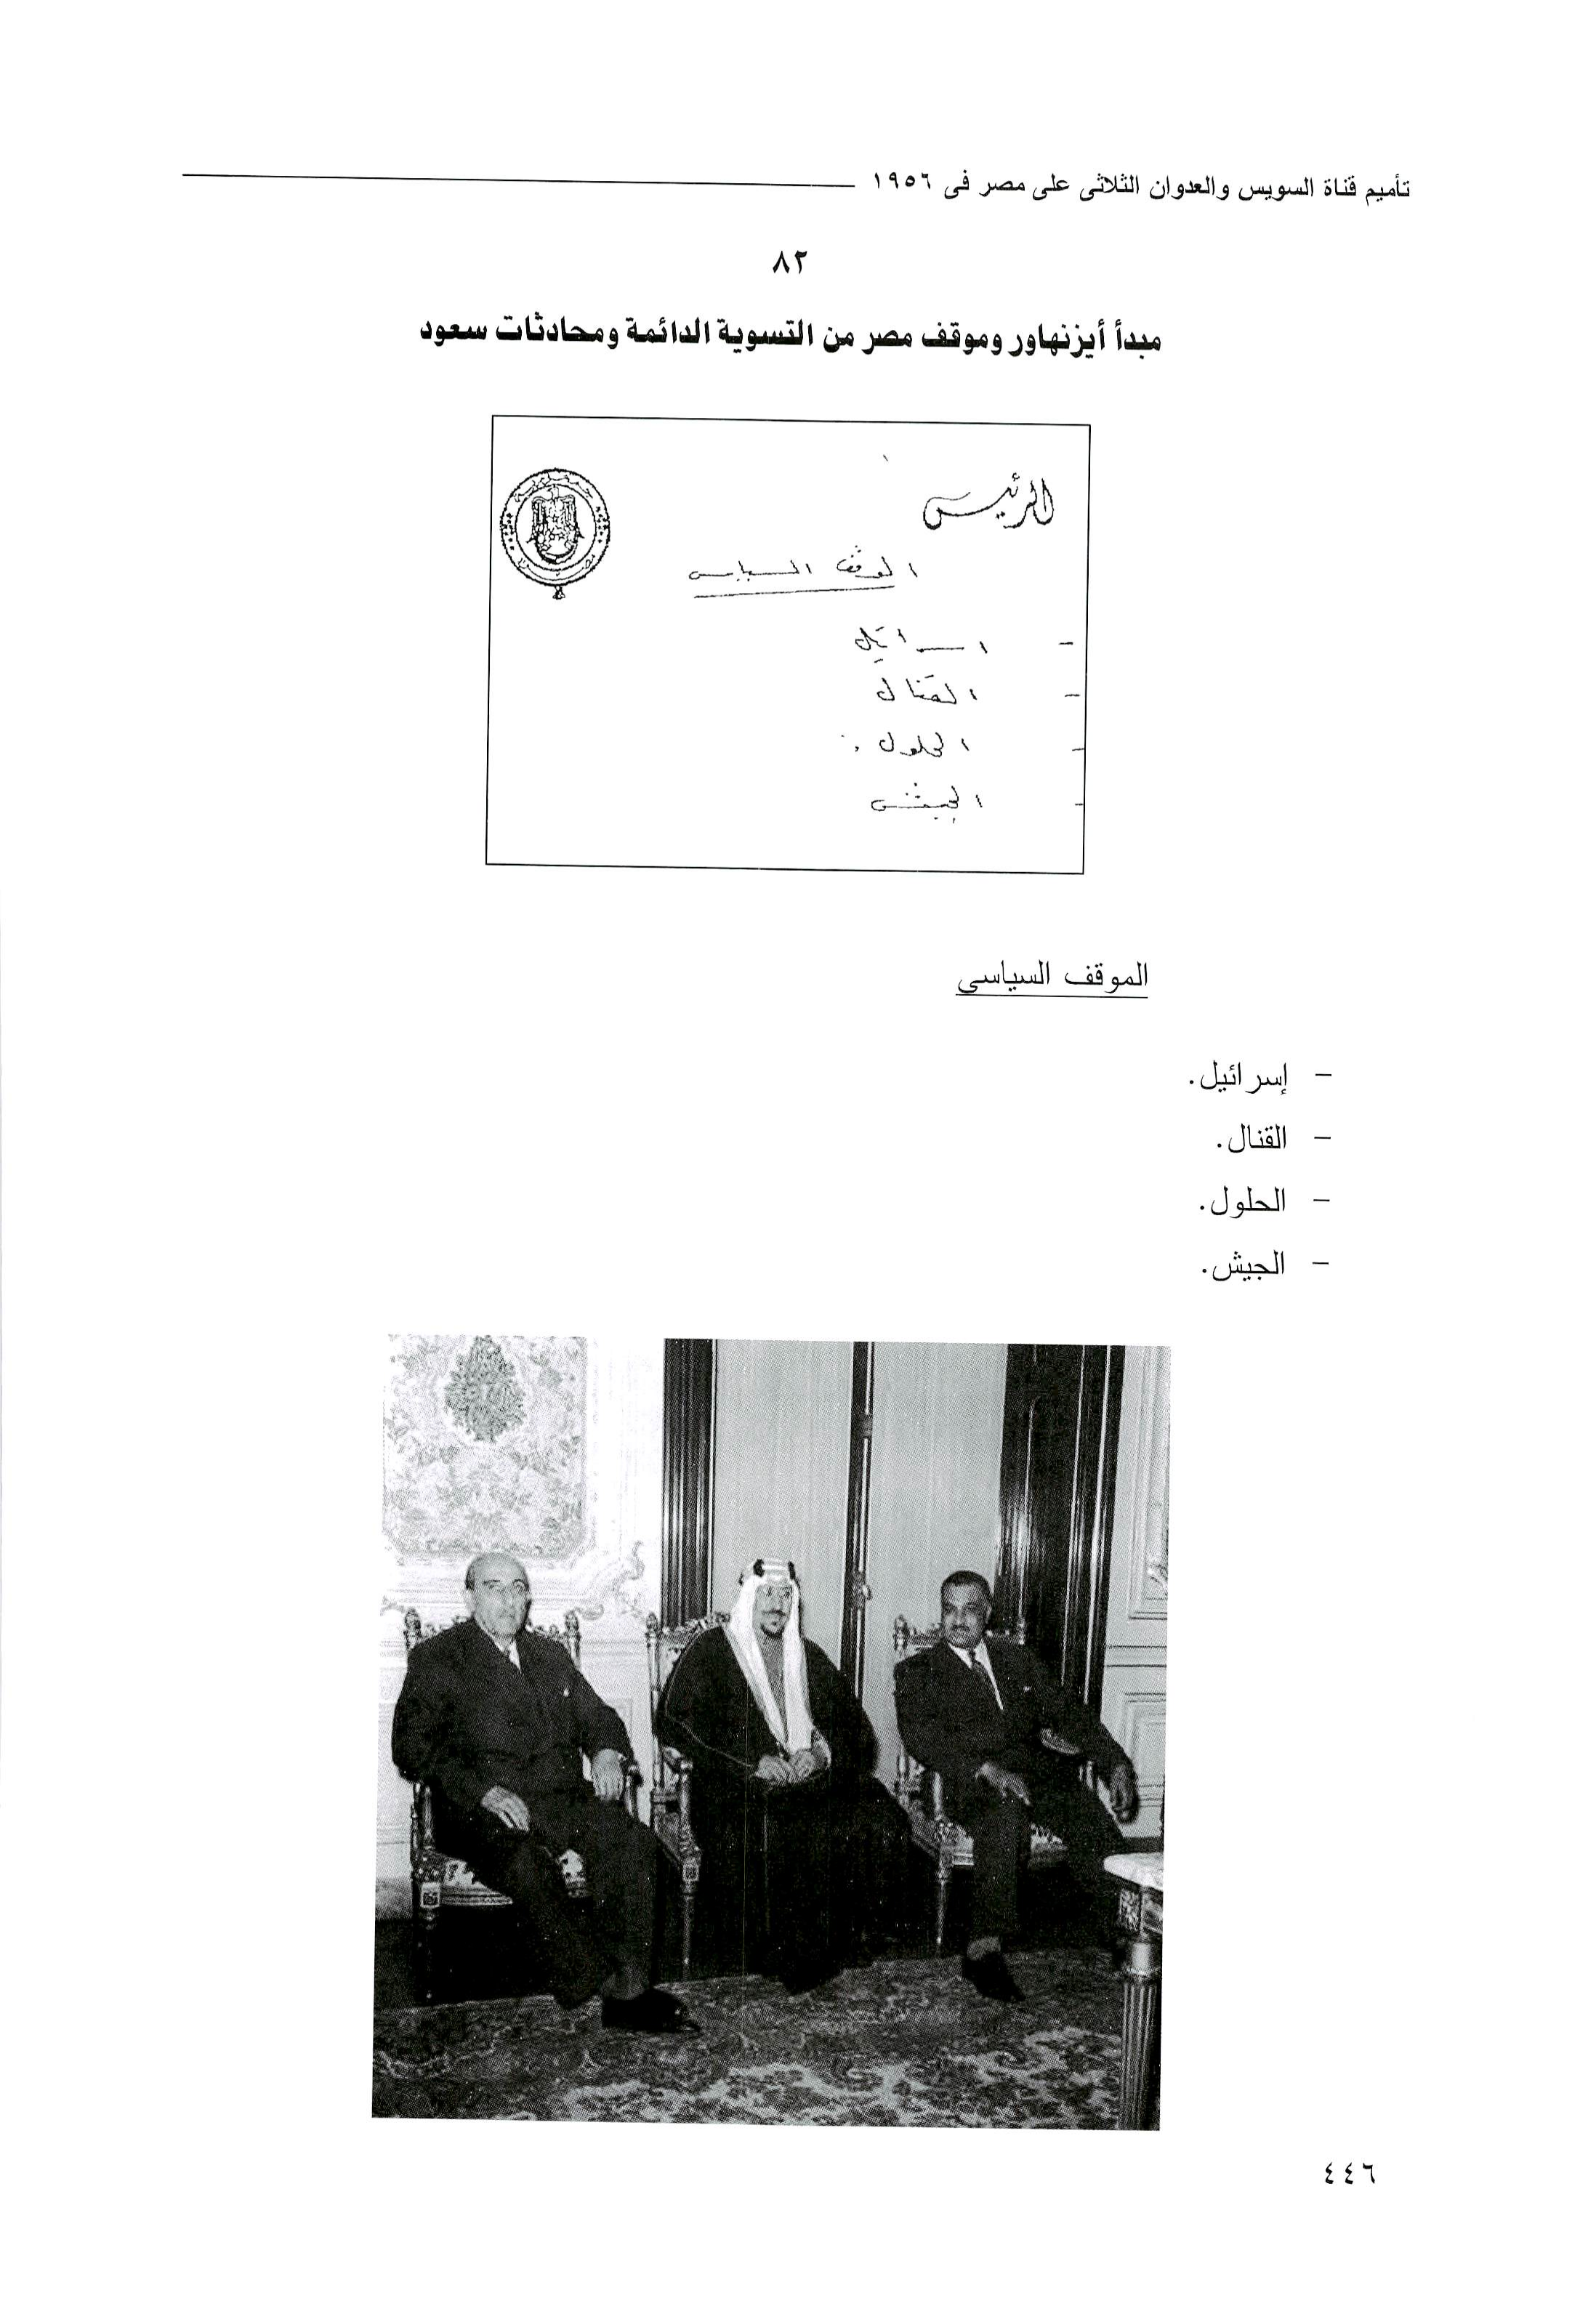 تأميم قناة السويس والعدوان الثلاثى على مصر فى ١٩٥٦
٨٢
مبدأ أيزنهاور وموقف مصر من التسوية الدائمة ومحادثات سعود
١
الرئيس
الموقف السياسى
- اسرائيل
- القنال
- الحلول .
- الجيش
الموقف السياسي
- إسرائيل.
- القنال.
- الحلول.
- الجيش.
٤٤٦